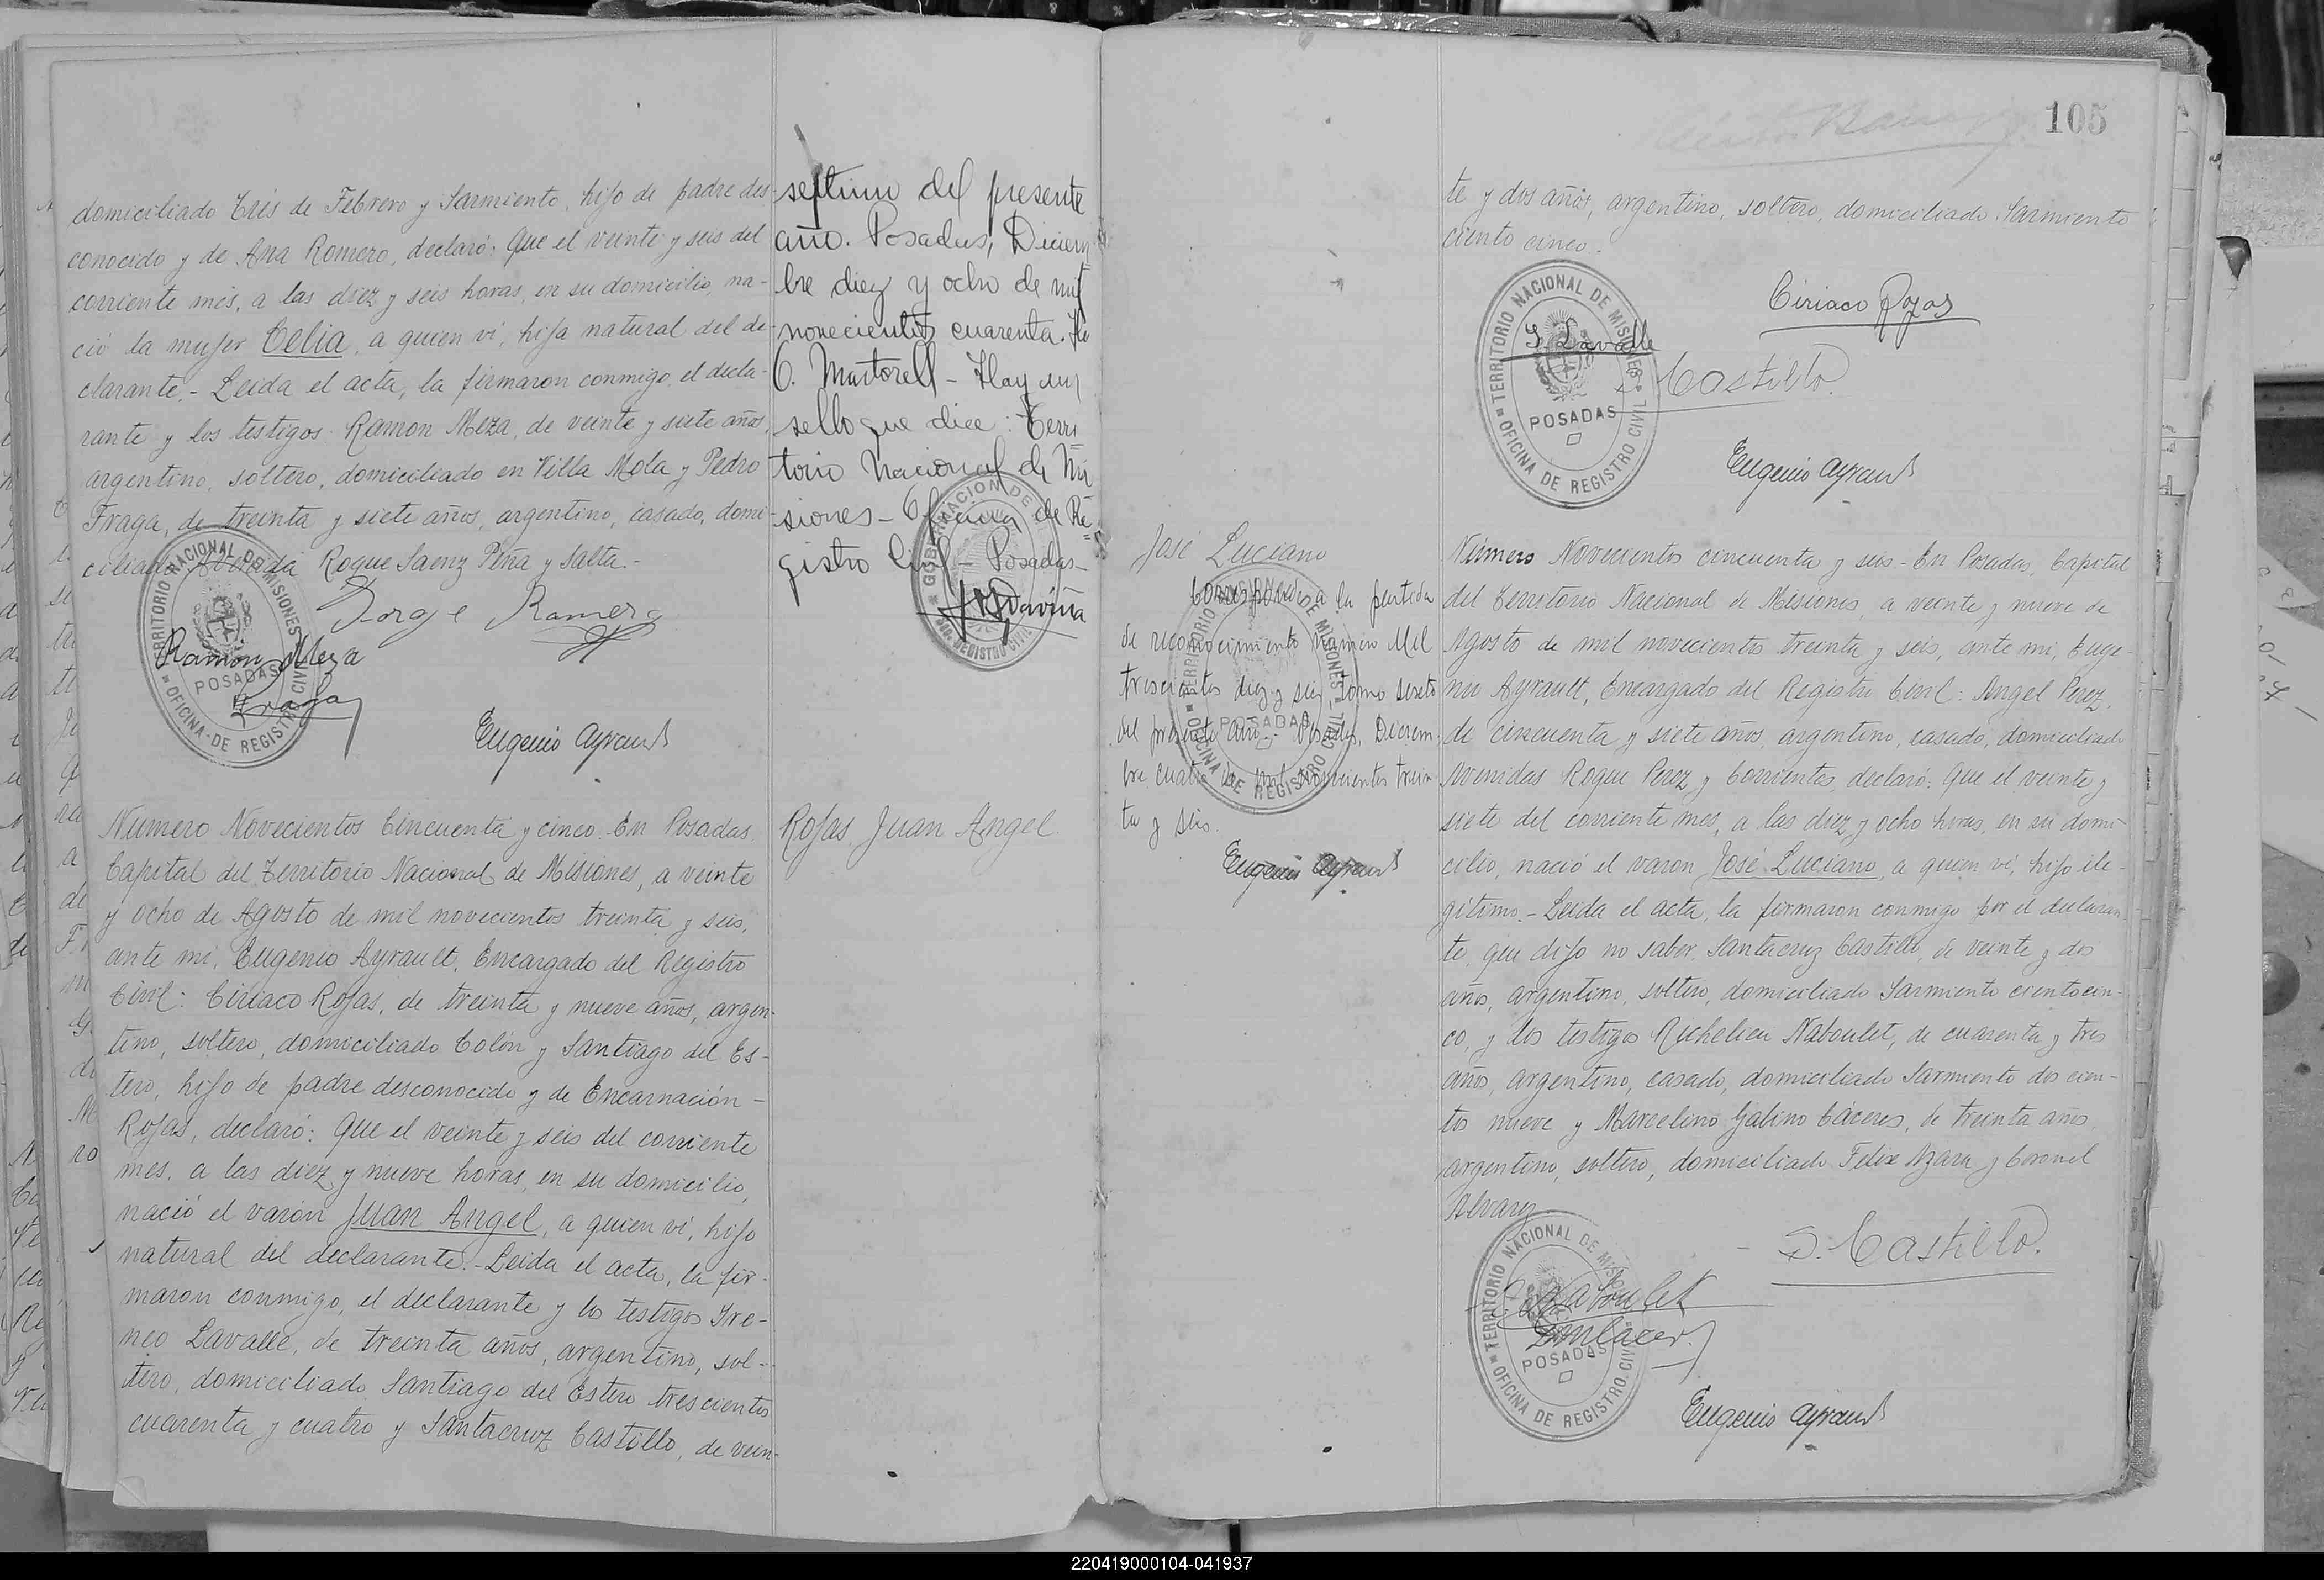 domiciliado Trés de Febrero y Sarmiento, hijo de padre des-
conocido y de Ana Romero, declaró: Que el veinte y seis del
corriente mes, a las diez y seis horas, en su domicilio, na-
ció la mujer Celia, a quien ví, hija natural del de-
clarante.- Leida el acta, la firmaron conmigo, el decla-
rante y los testigos: Ramon Meza, de veinte y siete años,
argentino, soltero, domiciliado en Villa Mola y Pedro
Fraga, de treinta y siete años, argentino, casado, domi-
ciliado Avenida Roque Saenz Peña y Salta.-
Jorge Romero
Ramón Meza
Fraga
Eugenio Ayrault
TERRITORIO NACIONAL DE MISIONES
POSADAS
OFICINA DE REGISTRO CIVIL
septimo del presente
año. Posadas, Diciem
bre diez y ocho de mil
novecientos cuarenta.
Martorell - Hay un
sello que dice: Terri
torio Nacional de Mi
siones - Oficina de Re
gistro Civil - Posadas-
GOBERNACION DE
REGISTRO CIVIL
Numero Novecientos Cincuenta y cinco.- En Posadas,
Capital del Territorio Nacional de Misiones, a veinte
y ocho de Agosto de mil novecientos treinta y seis,
ante mi, Eugenio Ayrault, Encargado del Registro
Civil: Ciriaco Rojas, de treinta y nueve años, argen-
tino, soltero, domiciliado Colón y Santiago del Es-
tero, hijo de padre desconocido y de Encarnación
Rojas, declaró: Que el veinte y seis del corriente
mes, a las diez y nueve horas, en su domicilio,
nació el varón Juan Angel, a quien ví, hijo
natural del declarante.- Leida el acta, la fir-
maron conmigo, el declarante y los testigos Ire-
neo Lavalle, de treinta años, argentino, sol-
tero, domiciliado Santiago del Estero trescientos
cuarenta y cuatro y Santacruz Castillo, de vein-
Rojas, Juan Angel
105
te y dos años, argentino, soltero, domiciliado Sarmiento
ciento cinco.
Ciriaco Rojas
I Lavalle
Castillo
Eugenio Ayrault
TERRITORIO NACIONAL DE MISIONES
POSADAS
OFICINA DE REGISTRO CIVIL
José Luciano
Corresponde a la partida
de reconocimiento número Mil
trescientos diez y seis, tomo sexto
del presente año.- Posadas, Diciem-
bre cuatro de mil novecientos trein-
ta y seis.
Eugenio Ayrault
TERRITORIO NACIONAL DE MISIONES
POSADAS
OFICINA DE REGISTRO CIVIL
Número Novecientos cincuenta y seis.- En Posadas, Capital
del Territorio Nacional de Misiones, a veinte y nueve de
Agosto de mil novecientos treinta y seis, ante mi, Euge-
nio Ayrault, Encargado del Registro Civil: Angel Perez,
de cincuenta y siete años, argentino, casado, domiciliado
Avenidas Roque Perez y Corrientes, declaró: Que el veinte y
siete del corriente mes, a las diez y ocho horas, en su domi-
cilio, nació el varon José Luciano, a quien ví, hijo ile-
gitimo.- Leida el acta, la firmaron conmigo por el declaran-
te, que dijo no saber, Santacruz Castillo, de veinte y dos
años, argentino, soltero, domiciliado Sarmiento ciento cin-
co, y los testigos Richelieu Naboulet, de cuarenta y tres
años, argentino, casado, domiciliado Sarmiento dos cien-
tos nueve y Marcelino Gabino Cáceres, de treinta años,
argentino, soltero, domiciliado Felix Azara y Coronel
Alvarez
S. Castillo.
Naboulet
Eugenio Ayrault
TERRITORIO NACIONAL DE MISIONES
POSADAS
OFICINA DE REGISTRO CIVIL
220419000104-041937